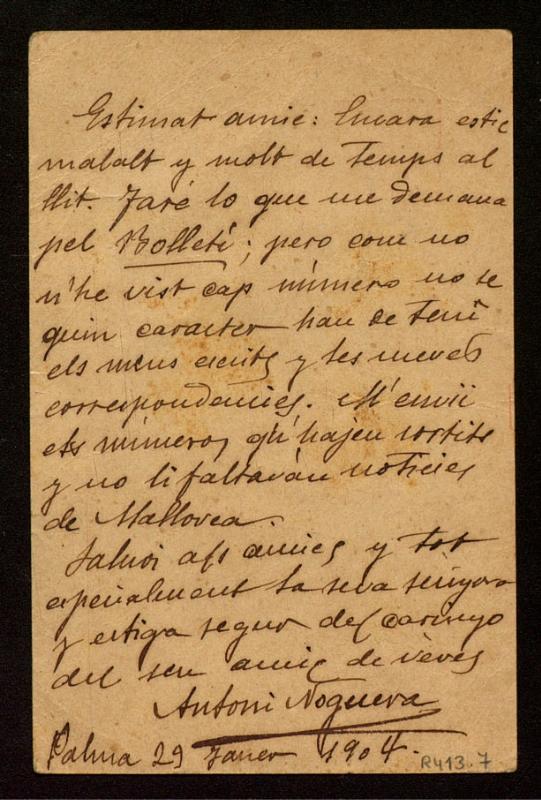 Estimat amic: Encara estic
malalt y molt de temps al
llit. Faré lo que me demana
pel Bolletí; pero com no
n'he vist cap número no se
quin caracter han de tení
els meus escrits y les meves
correspondencies. M'envii
els números qu'hajen sortits
y no li faltarán noticies
de Mallorca.
Saludi als amics y tot
especialment la seva senyora
y estiga segur del carinyo
del seu amic de veres
Antoni Noguera
Palma 29 Janer 1904.
R413.7